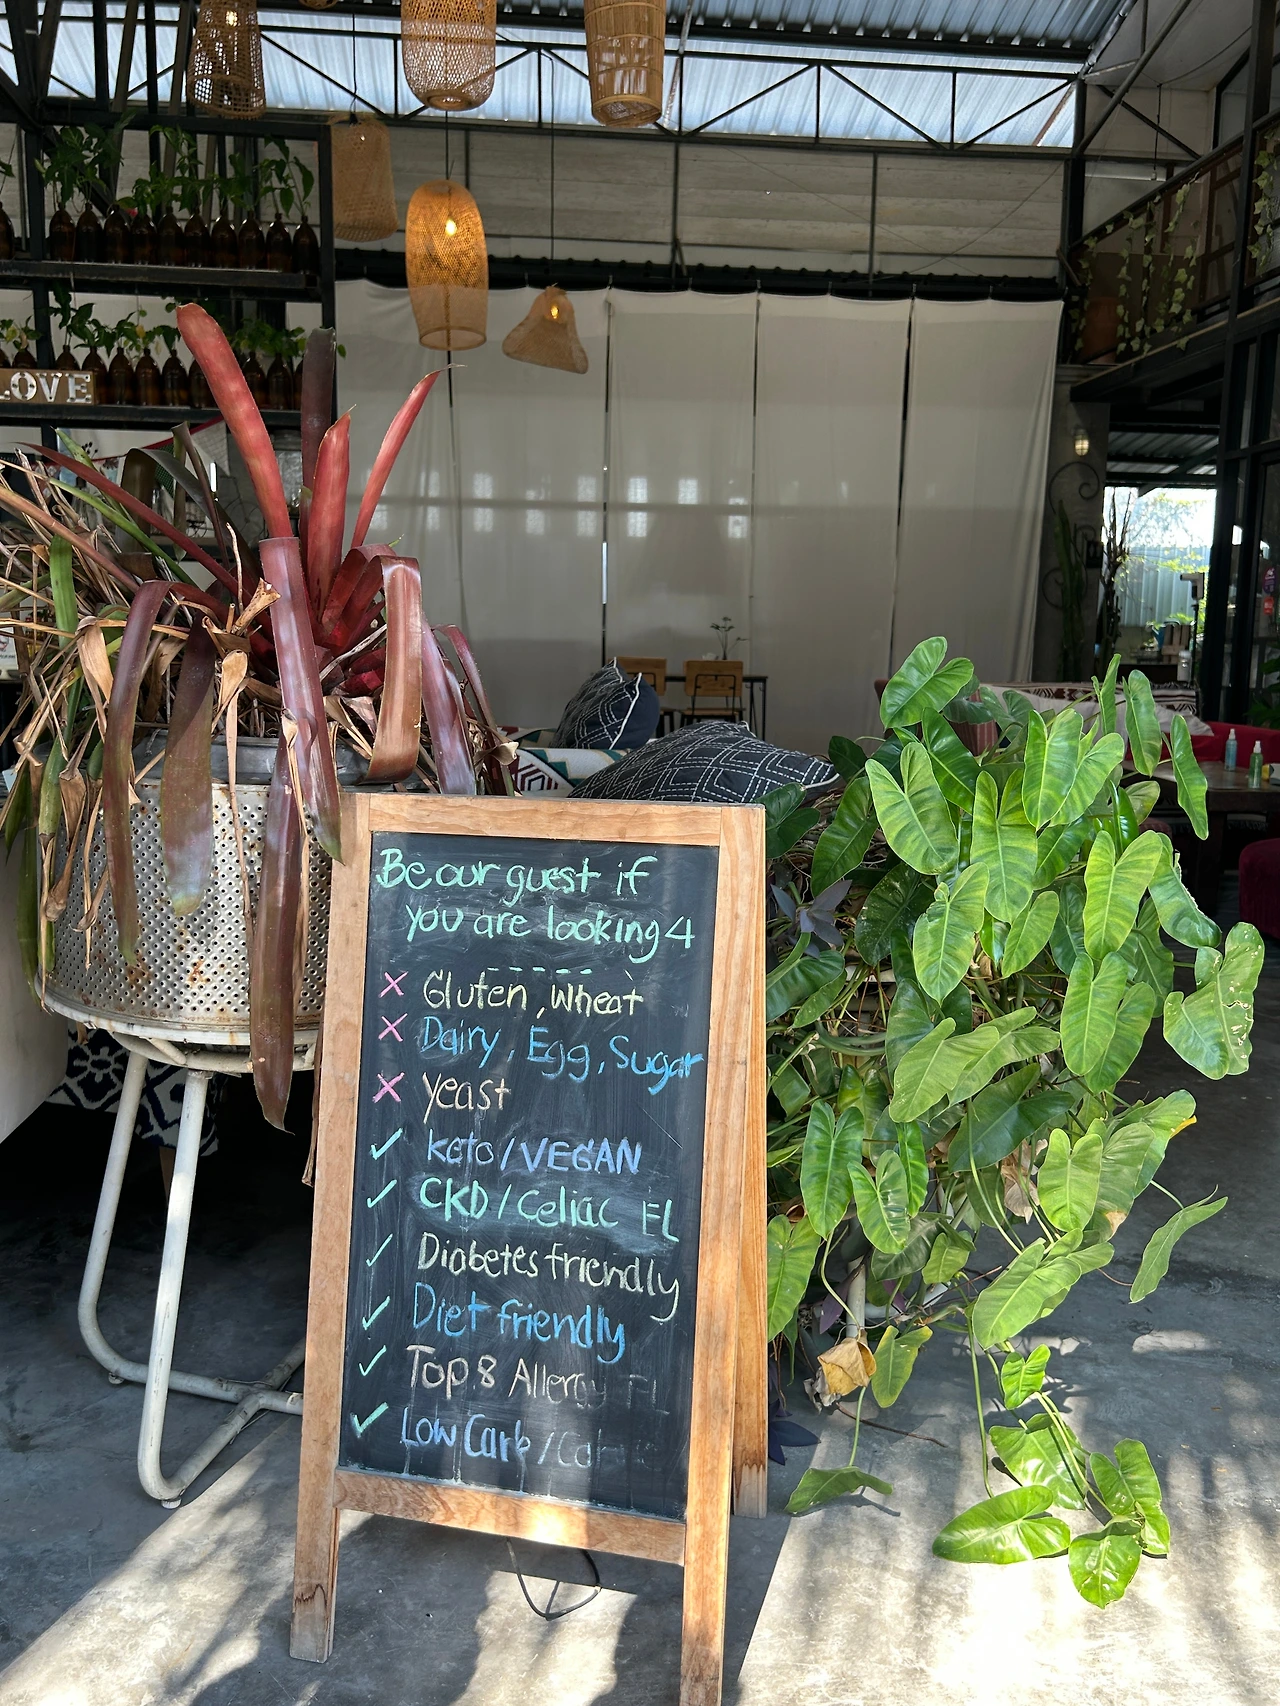 LOVE
Be our guest if
you are looking 4
× Gluten, Wheat
× Dairy, Egg, Sugar
× yeast
✓ keto/VEGAN
✓ CKD/Celiac FL
✓ Diabetes friendly
✓ Diet friendly
✓ Top 8 Allergy FL
✓ Low Carb/